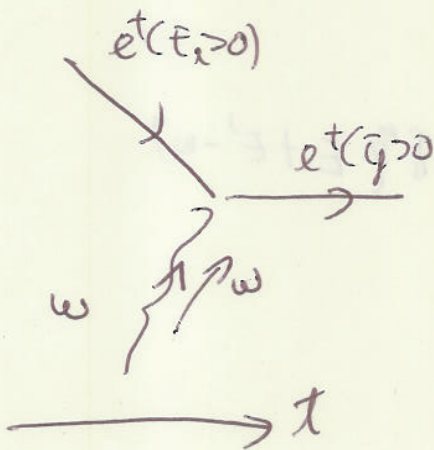 e⁺(E_i>0)
e⁺(E_f>0
ω
ω
t